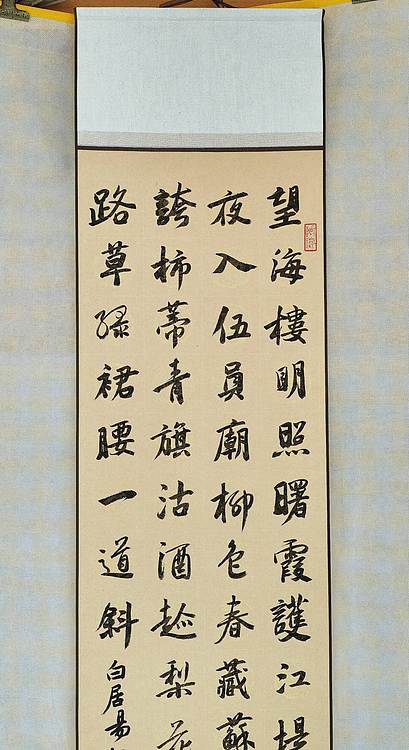 望海樓明照曙霞護江堤
夜入伍員廟柳色春藏蘇
誇柿蒂青旗沽酒趁梨花
路草綠裙腰一道斜白居易